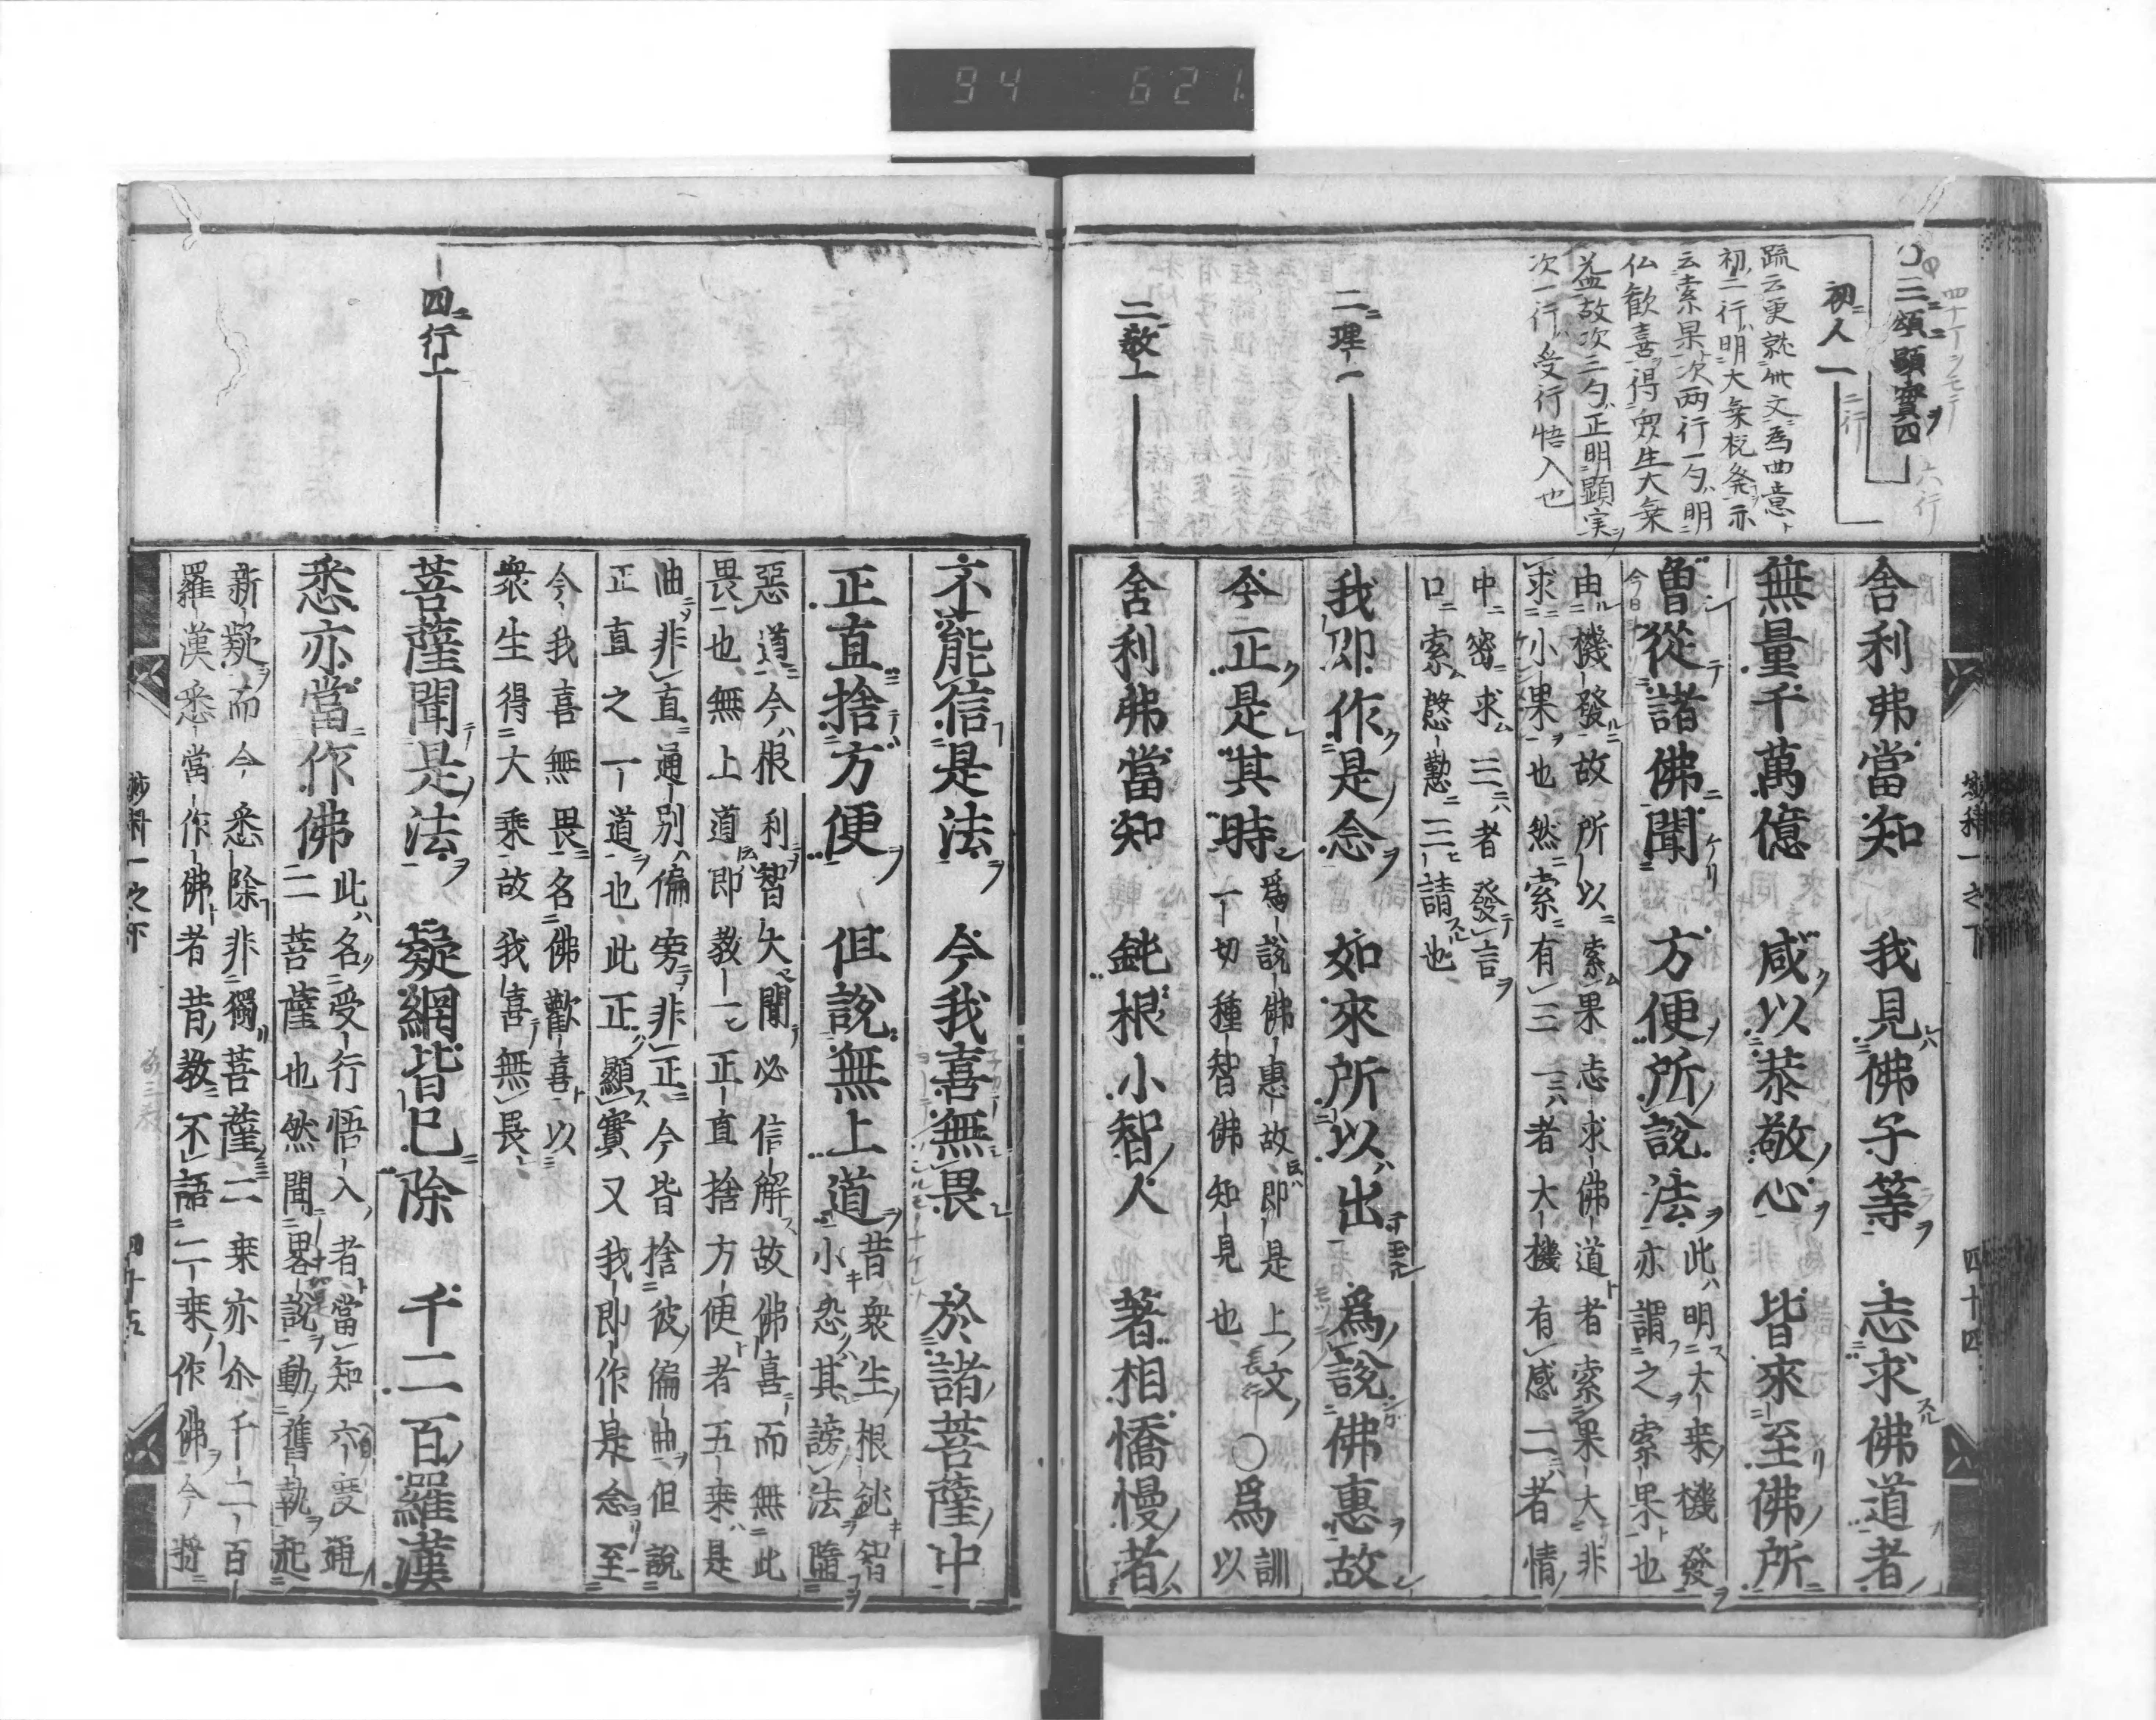 94 621
○三頌顯實四
初人一
疏云更就此文為四意
初二行明大乗机発示
云索果次両行一句明
仏歓喜得衆生大乗
益故次三句正明顕実
次一行受行悟入也
二理一
二教上
舍利弗當知 我見佛子等 志求佛道者
無量千萬億 咸以恭敬心 皆來至佛所
曾從諸佛聞 方便所說法 此明大乗機發
亦謂之索果也
由機發故所以索果志求佛道者索果大非
求小果也然索有三一者大機有感二者情
中密求三者發言
口索慇懃三請也
我即作是念 如來所以出 爲說佛惠故
今正是其時 爲說佛惠故即是上文○爲訓
一切種智佛知見也 以
舍利弗當知 鈍根小智人 著相憍慢者
妙科一之下
四十四
四行上
不能信是法 今我喜無畏 於諸菩薩中
正直捨方便 但說無上道 昔衆生根鈍智
小恐其謗法墮
惡道今根利智大聞必信解故佛喜而無此
畏也無上道即教一正直捨方便者五乗是
曲非直通別偏旁非正今皆捨彼偏曲但說
正直之一道也此正顯實又我即作是念至
今我喜無畏名佛歡喜以
衆生得大乘故我喜無畏
菩薩聞是法 疑網皆已除 千二百羅漢
悉亦當作佛 此名受行悟入者當知六度通
二菩薩也然聞畧說動舊執起
新疑而今悉除非獨菩薩二乗亦尒千二百
羅漢悉當作佛者昔教不語二乗作佛今將
四十五